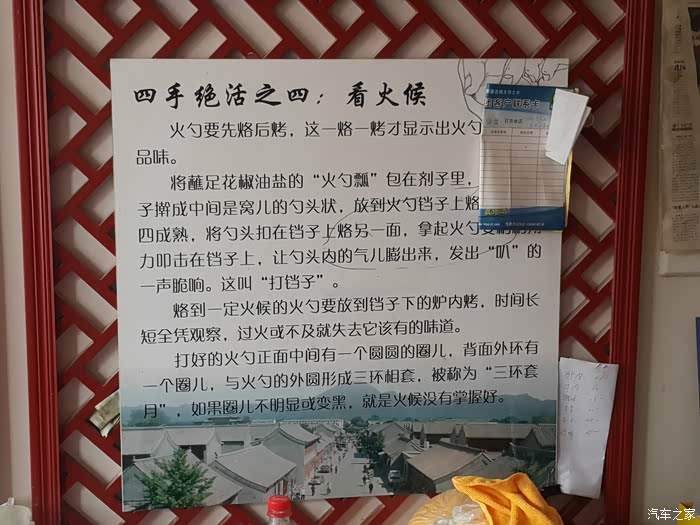 四手绝活之四：看火候
火勺要先烙后烤，这一烙一烤才显示出火勺
品味。
将蘸足花椒油盐的“火勺瓢”包在剂子里，
子擀成中间是窝儿的勺头状，放到火勺铛子上烙
四成熟，将勺头扣在铛子上烙另一面，拿起火勺
力叩击在铛子上，让勺头内的气儿膨出来，发出“叭”的
一声脆响。这叫“打铛子”。
烙到一定火候的火勺要放到铛子下的炉内烤，时间长
短全凭观察，过火或不及就失去它该有的味道。
打好的火勺正面中间有一个圆圆的圈儿，背面外环有
一个圈儿，与火勺的外圆形成三环相套，被称为“三环套
月”，如果圈儿不明显或变黑，就是火候没有掌握好。
客户联系卡
汽车之家